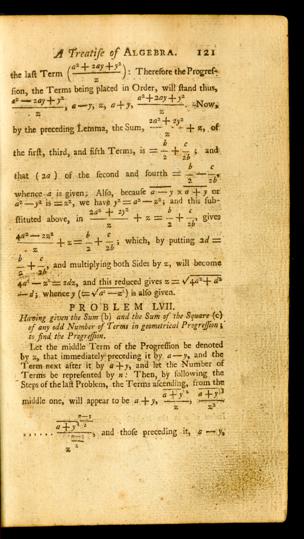 A Treatise of ALGEBRA. 121
the last Term (a²+2ay+y²/z): Therefore the Progres-
sion, the Terms being placed in Order, will stand thus,
a²−2ay+y²/z, a−y, z, a+y, a²+2ay+y²/z. Now,
by the preceding Lemma, the Sum, 2a²+2y²/z + z, of
the first, third, and fifth Terms, is = b/2 + c/2b; and
that (2a) of the second and fourth = b/2 − c/2b,
whence a is given; Also, because a−y × a+y or
a²−y² is = z², we have y² = a²−z²; and this sub-
stituted above, in 2a²+2y²/z + z = b/2 + c/2b, gives
4a²−2z²/z + z = b/2 + c/2b; which, by putting 2d =
b/2 + c/2b, and multiplying both Sides by z, will become
4a²−z² = 2dz, and this reduced gives z = √4a²+d²
−d; whence y (= √a²−z²) is also given.
PROBLEM LVII.
Having given the Sum (b) and the Sum of the Square (c)
of any odd Number of Terms in geometrical Progression;
to find the Progression.
Let the middle Term of the Progression be denoted
by z, that immediately preceding it by a−y, and the
Term next after it by a+y, and let the Number of
Terms be represented by n: Then, by following the
Steps of the last Problem, the Terms ascending, from the
middle one, will appear to be a+y, a+y)²/z, a+y)³/z²
and those preceding it, a−y,